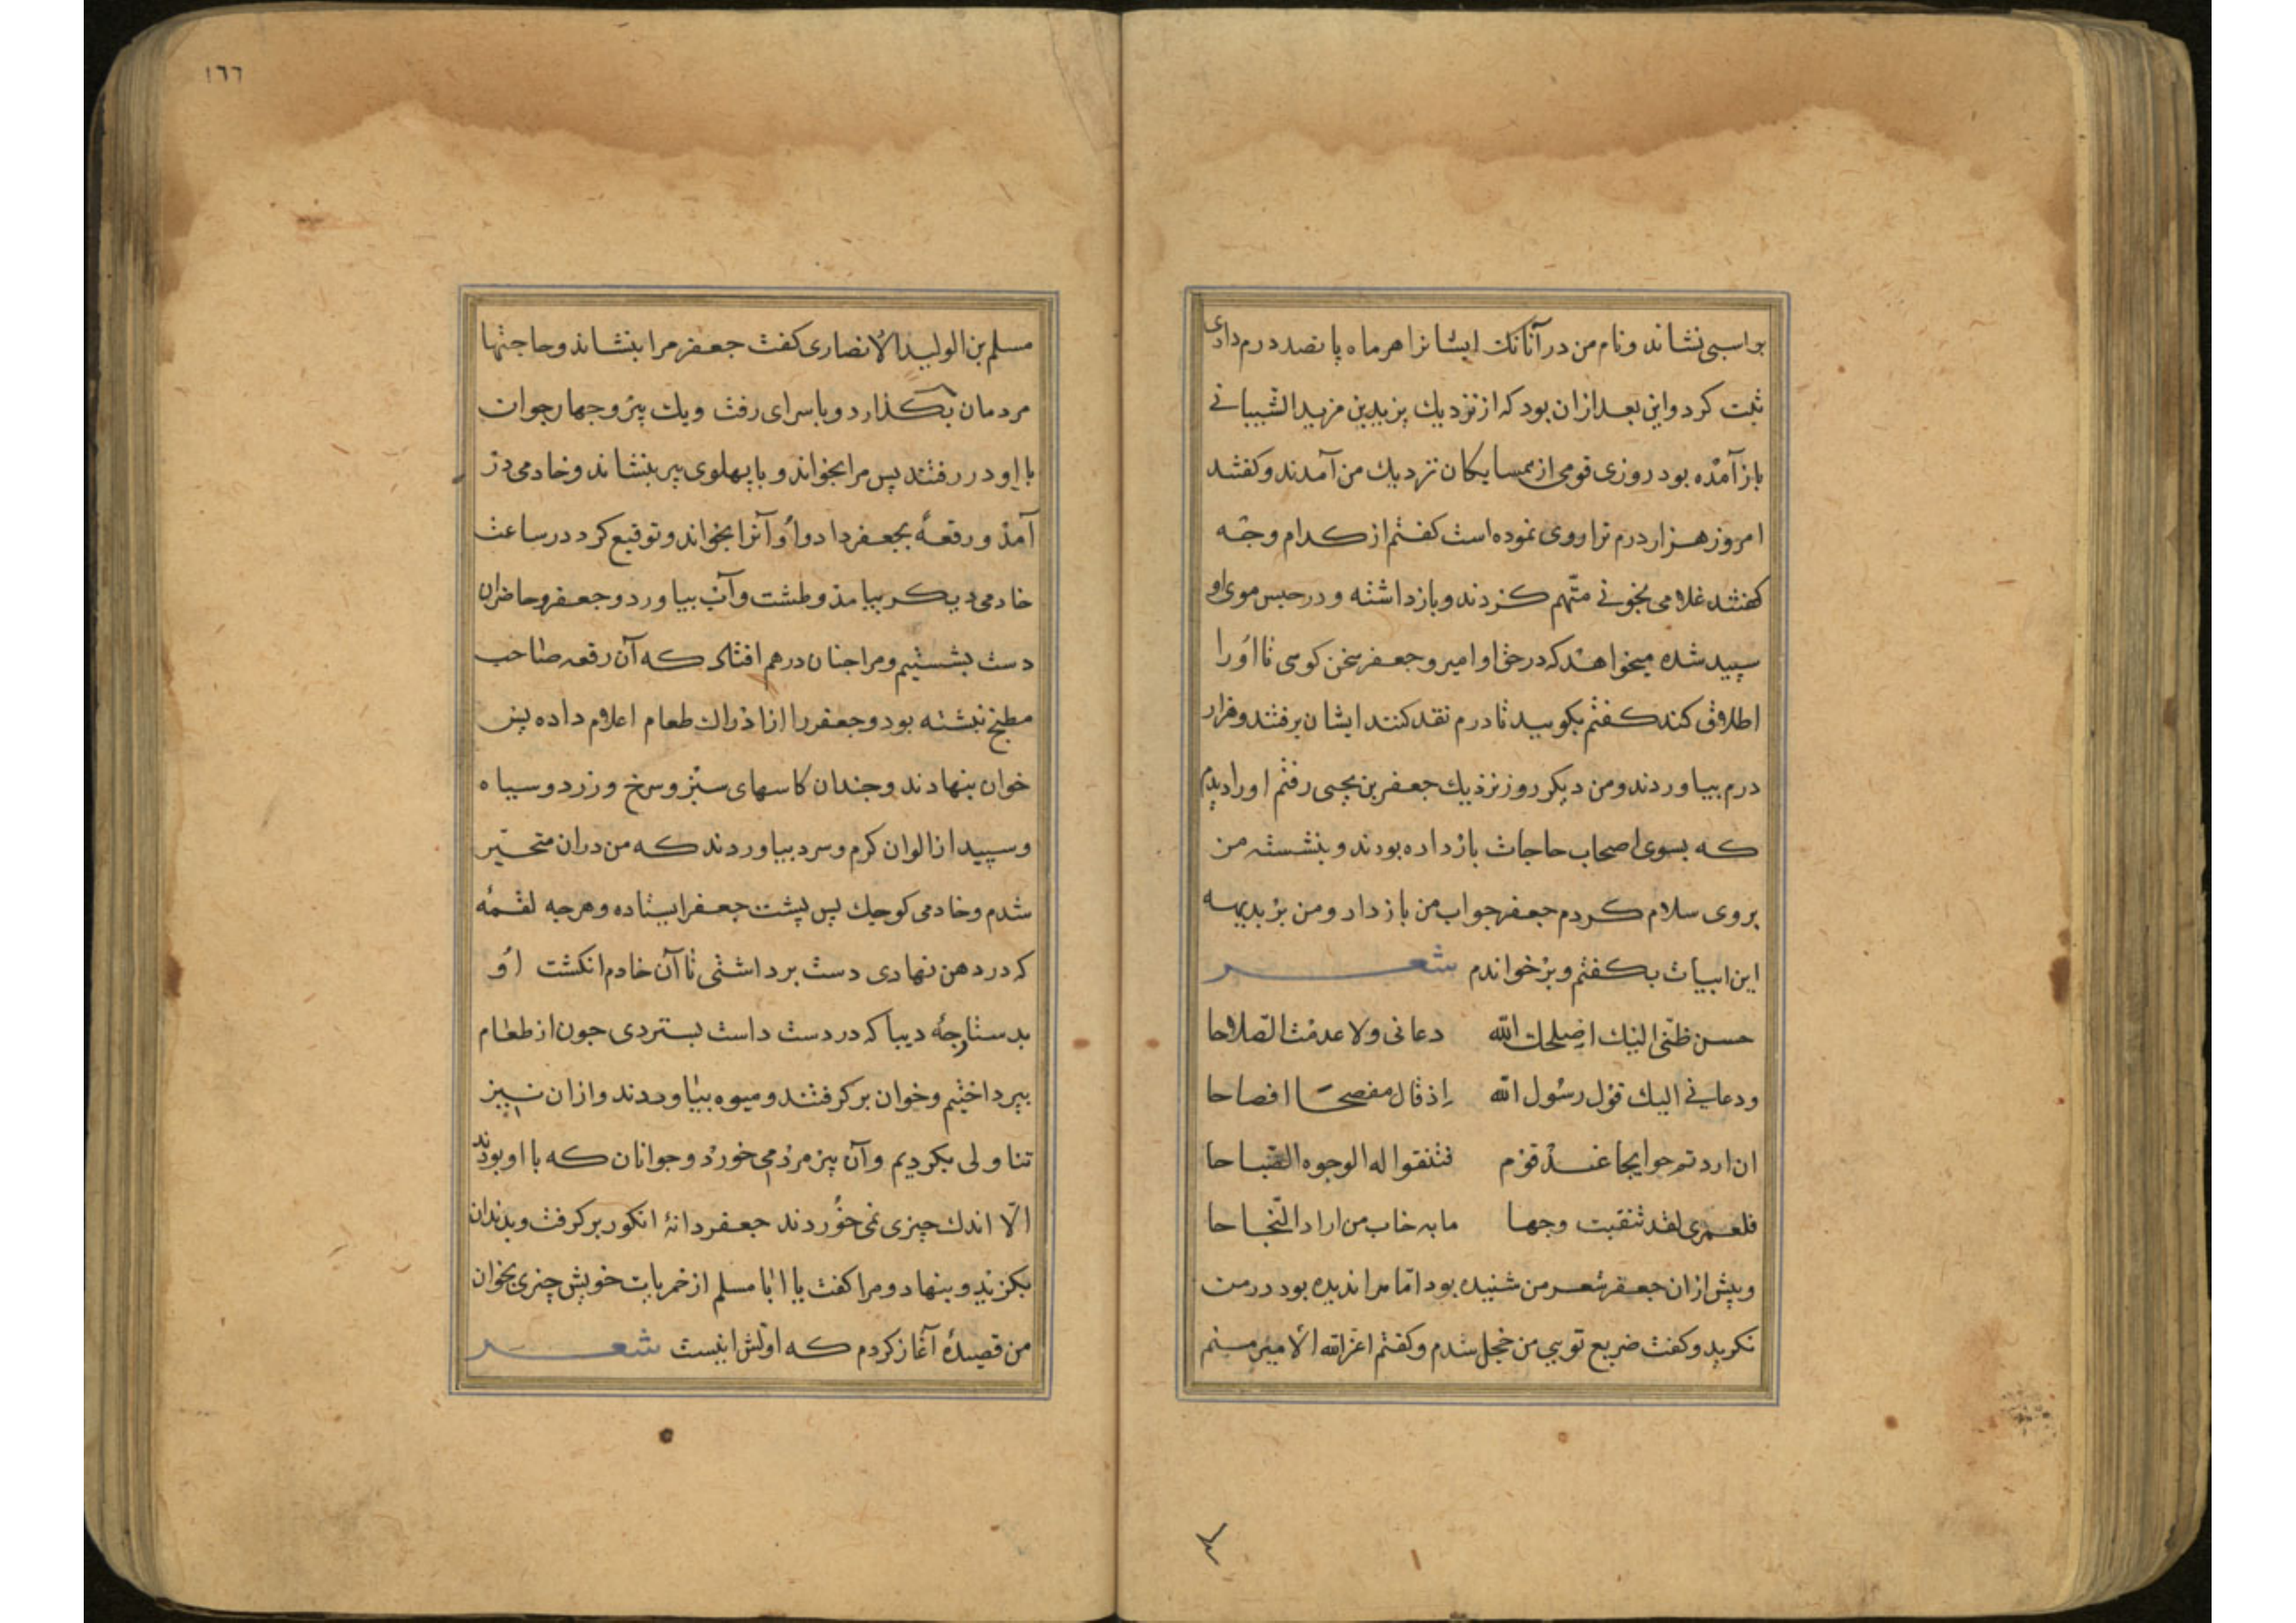 بر اسبی نشاند و نام من در آنانک ایشانرا هر ماه پانصد درم دادی
ثبت کرد و این بعد ازان بود که از نزدیك یزید بن مزید الشیبانی
باز آمده بود روزی قومی از همسایکان نزدیك من آمدند و کفتند
امروز هزار درم ترا روی نموده است کفتم از کدام وجه
کفتند غلامی بخونی متّهم کردند و بازداشته و در حبس موی او
سپید شده میخواهند که در حق او امیر و جعفر سخن کوی تا او را
اطلاق کند کفتم بکویید تا درم نقد کنند ایشان برفتند و هزار
درم بیاوردند و من دیکر روز نزدیك جعفر بن یحیی رفتم او را دیدم
که بسوی اصحاب حاجات بازداده بودند و بنشسته من
بروی سلام کردم جعفر جواب من باز داد و من بر بدیهه
این ابیات بکفتم و بر خواندم شعر
حسن ظنّی الیك اصلحك الله دعانی ولا عدمت الصّلاحا
ودعانی الیك قول رسول الله اذ قال مفصحا افصاحا
ان اردتم حوایجا عند قوم فتنقوا لها الوجوه الصّباحا
فلعمری لقد تنقبت وجها ما به خاب من اراد النّجاحا
و پیش ازان جعفر شعر من شنیده بود امّا مرا ندیده بود در من
نکرید و کفت ضریع تویی من خجل شدم و کفتم اعزّ الله الأمیر منم
١٦٦
مسلم بن الولید الأنصاری کفت جعفر مرا بنشاند و حاجتها
مردمان بکذارد و با سرای رفت و یك پیر و جهار جوان
با او در رفتند پس مرا بخواند و با پهلوی پیر بنشاند و خادمی در
آمد و رقعهٔ بجعفر داد و او آنرا بخواند و توقیع کرد در ساعت
خادمی دیکر بیامد و طشت و آب بیاورد و جعفر و حاضران
دست بشستیم و مرا جنان در هم افتاد که آن رقعه صاحب
مطبخ نبشته بود و جعفر را از ادراك طعام اعلام داده پس
خوان بنهادند و جندان کاسهای سبز و سرخ و زرد و سیاه
و سپید از الوان کرم و سرد بیاوردند که من دران متحیّر
شدم و خادمی کوجك پس پشت جعفر ایستاده و هرجه لقمهٔ
که در دهن نهادی دست برداشتی تا آن خادم انکشت او
بدستارجهٔ دیبا که در دست داست بستردی جون از طعام
بپرداختیم و خوان بر کرفتند و میوه بیاوردند و ازان نیز
تناولی بکردیم و آن پیر مرد می خورد و جوانان که با او بودند
الّا اندك چیزی نمی خوردند جعفر دانهٔ انکور بر کرفت و بدندان
بکزید و بنهاد و مرا کفت یا ابا مسلم از خمریات خویش چیزی بخوان
من قصیدهٔ آغاز کردم که اوّلش اینست شعر